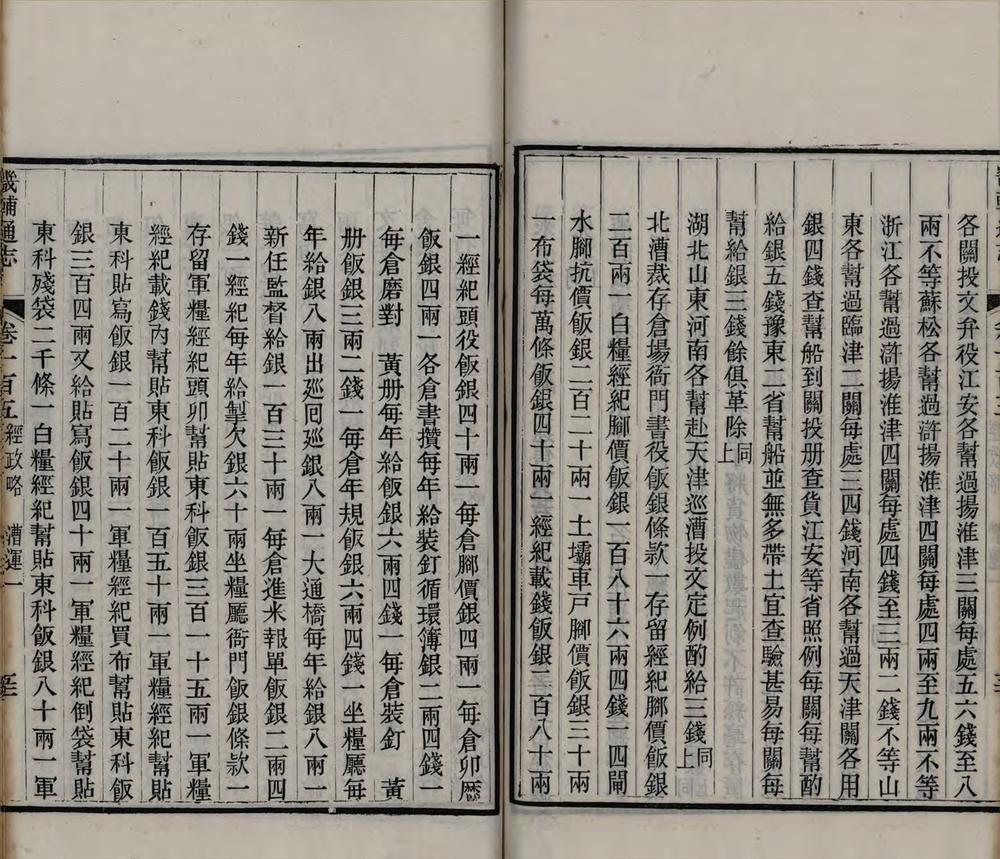 各關投文弁役江安各幫過揚淮津三關每處五六錢至八
兩不等蘇松各幫過滸揚淮津四關每處四兩至九兩不等
浙江各幫過滸揚淮津四關每處四錢至三兩二錢不等山
東各幫過臨津二關每處三四錢河南各幫過天津關各用
銀四錢查幫船到關投册查貨江安等省照例每關每幫酌
給銀五錢豫東二省幫船並無多帶土宜查驗甚易每關每
幫給銀三錢餘俱革除同上
湖北山東河南各幫赴天津巡漕投文定例酌給三錢同上
北漕裁存倉場衙門書役飯銀條款一存留經紀腳價飯銀
二百兩一白糧經紀腳價飯銀一百八十六兩四錢一四閘
水腳抗價飯銀二百二十兩一土壩車戶腳價飯銀三十兩
一布袋每萬條飯銀四十兩一經紀載錢飯銀三百八十兩
一經紀頭役飯銀四十兩一每倉腳價銀四兩一每倉卯曆
飯銀四兩一各倉書攢每年給裝釘循環簿銀二兩四錢一
每倉磨對黃册每年給飯銀六兩四錢一每倉裝釘黃
册飯銀三兩二錢一每倉年規飯銀六兩四錢一坐糧廳每
年給銀八兩出廵囘廵銀八兩一大通橋每年給銀八兩一
新任監督給銀一百三十兩一每倉進米報單飯銀二兩四
錢一經紀每年給掣欠銀六十兩坐糧廳衙門飯銀條款一
存留軍糧經紀頭卯幫貼東科飯銀三百一十五兩一軍糧
經紀載錢內幫貼東科飯銀一百五十兩一軍糧經紀幫貼
東科貼寫飯銀一百二十兩一軍糧經紀買布幫貼東科飯
銀三百四兩又給貼寫飯銀四十兩一軍糧經紀倒袋幫貼
東科殘袋二千條一白糧經紀幫貼東科飯銀八十兩一軍
畿輔通志 卷一百五 經政略 漕運一